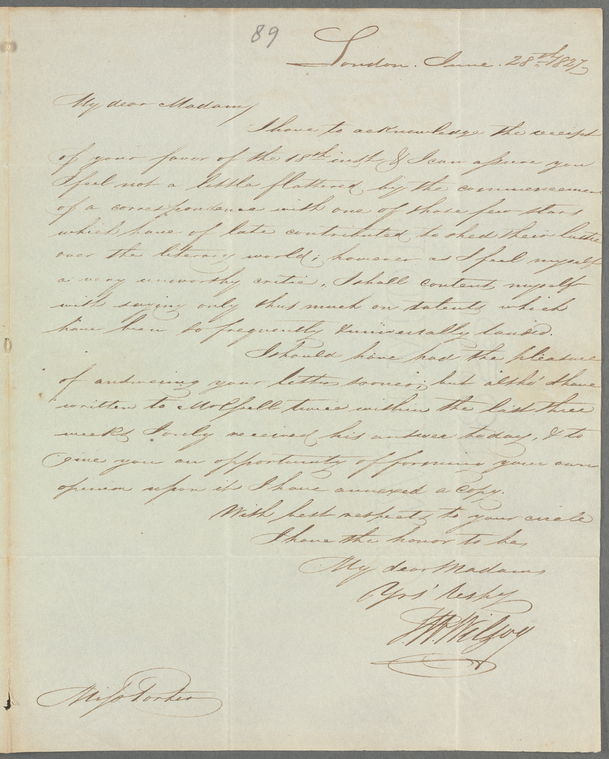 89
London. June. 28th 1827
My dear Madam,
I have to acknowledge the receipt
of your favor of the 18th inst. & I can assure you
I feel not a little flattered by the commencement
of a correspondence with one of those few stars
which have of late contributed to shed their lustre
over the literary world; however as I feel myself
a very unworthy critic, I shall content myself
with saying only thus much on talents which
have been so frequently & universally lauded.
I should have had the pleasure
of answering your letter sooner; but altho' I have
written to twice within the last three
weeks, I only received his answer today, & to
give you an opportunity of forming your own
opinion upon it I have annexed a copy.
With best respects to your circle
I have the honor to be,
My dear Madam,
Yrs' respy
Wilson
Miss Porter